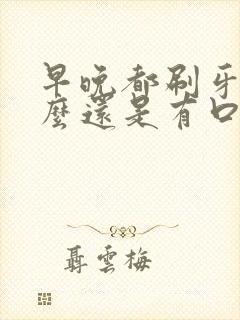 早晚都刷牙
麼還是有口
聶雲梅